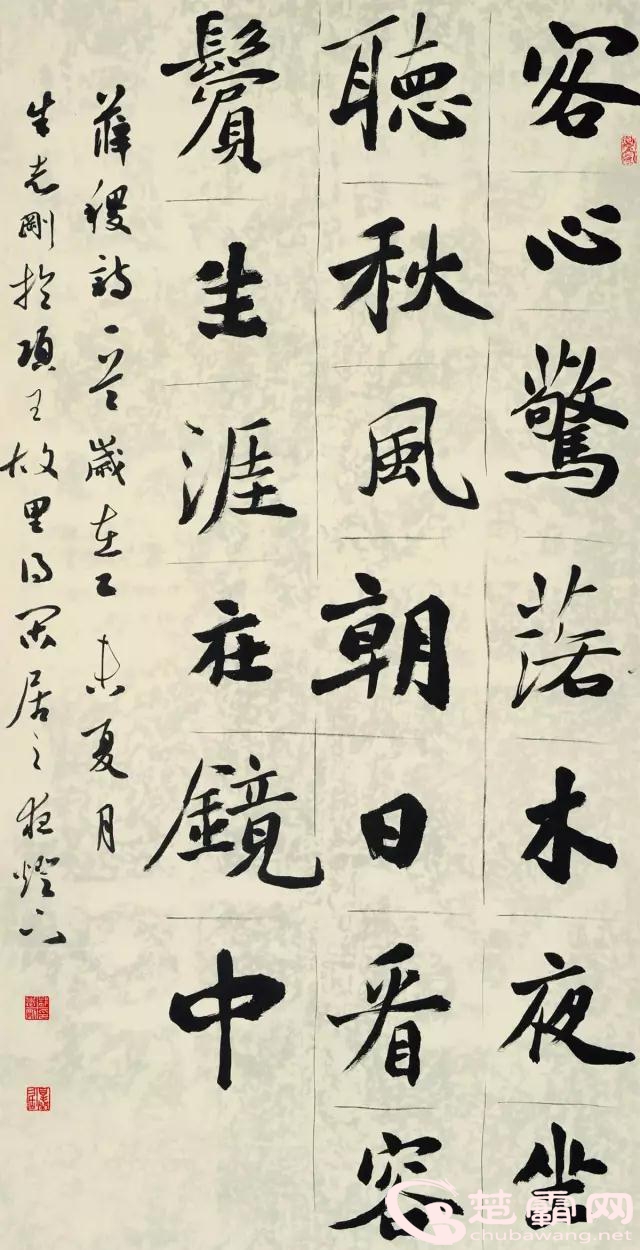 客心驚落木夜坐
聽秋風朝日看容
鬢生涯在鏡中
薛稷詩一首歲在乙未夏月
志剛於項王故里得閑居之夜燈下
楚霸网
chubawang.net